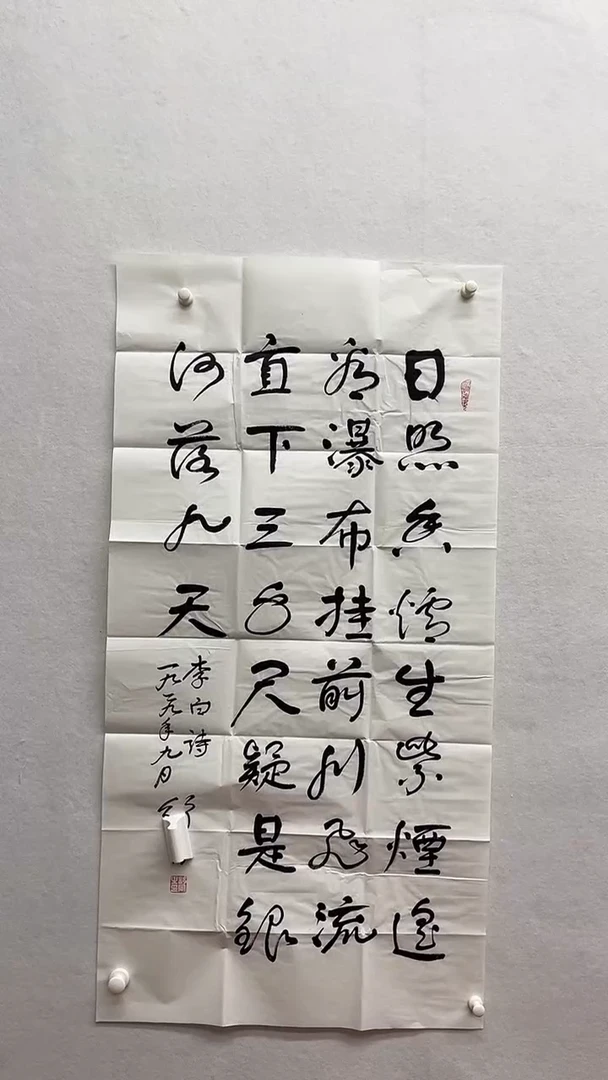 日照香爐生紫煙遙
看瀑布挂前川飛流
直下三千尺疑是銀
河落九天
李白詩
年九月